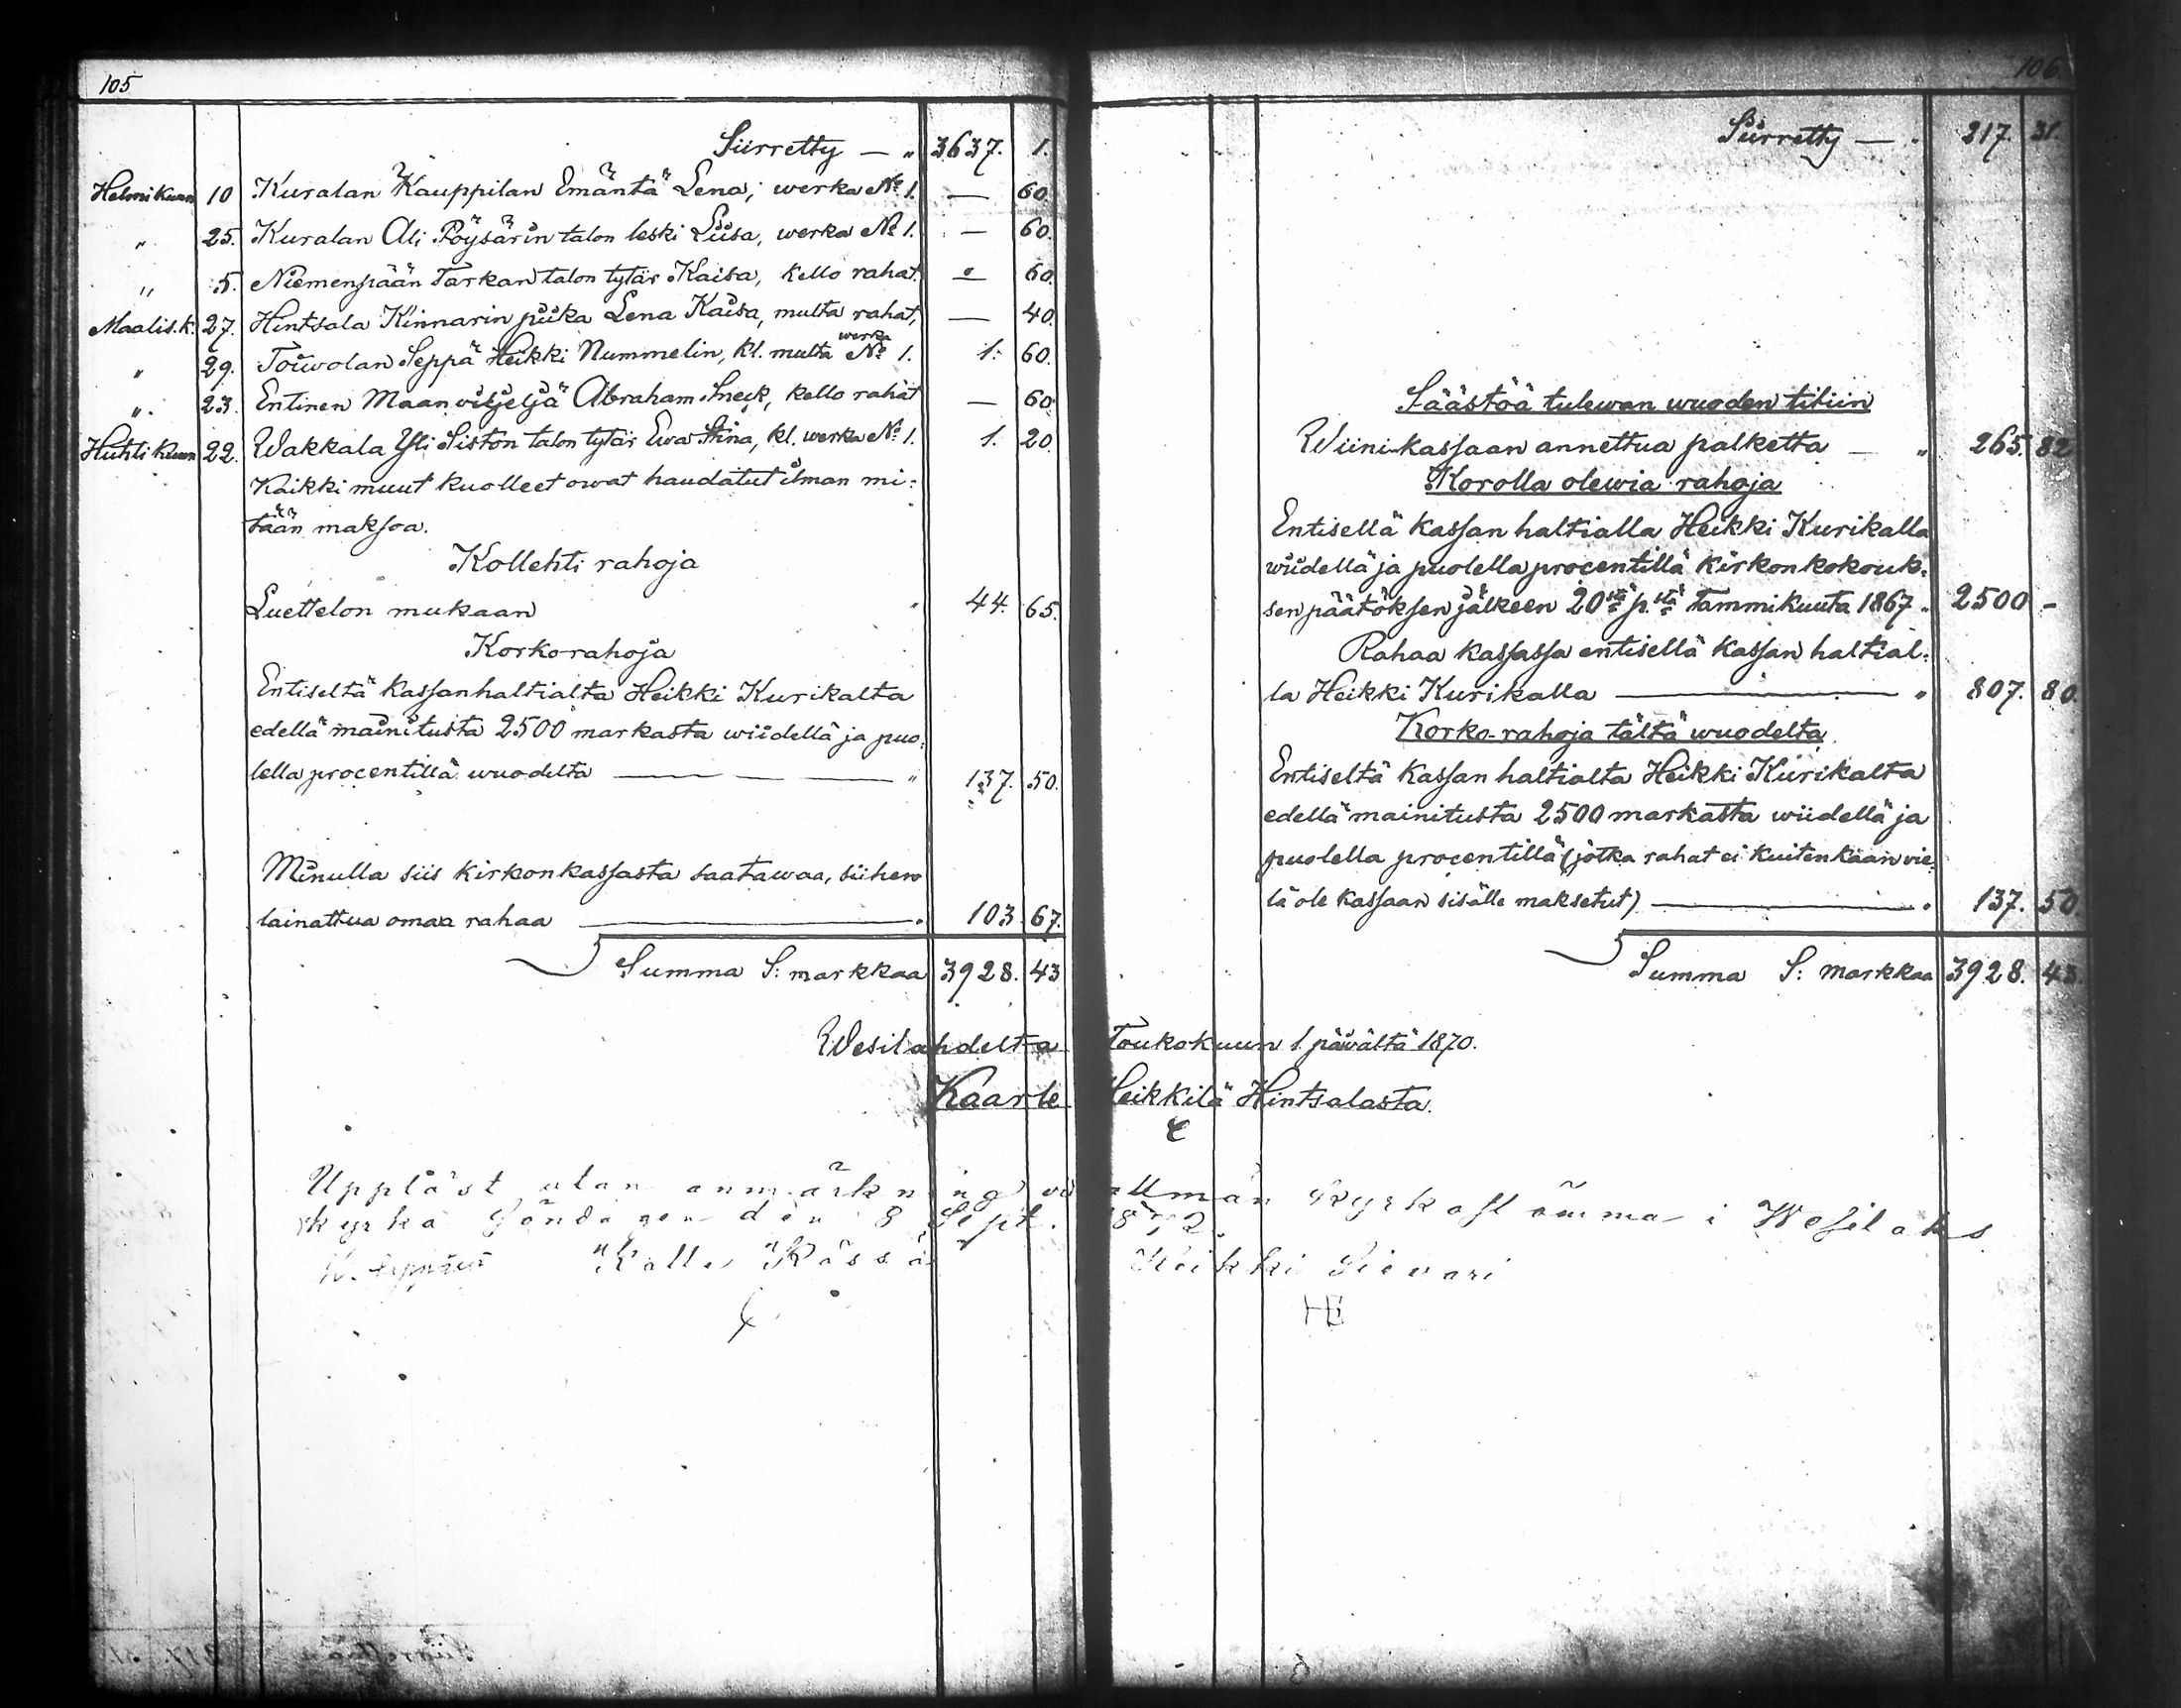 105
Siirretty — „ 3637. 1.
Helmikuun 10 Kuralan Kauppilan Emäntä Lena, werka No 1. — 60.
„ 25. Kuralan Ali Pöysärin talon leski Liisa, werka No 1. — 60.
„ 5. Niemenpään Tarkan talon tytär Kaisa, kello rahat. — 60.
Maalis.k. 27. Hintsala Kinnarin piika Lena Kaisa, multa rahat, — 40.
„ 29. Touwolan Seppä Heikki Nummelin, kl. multa werka No 1. 1. 60.
„ 23. Entinen Maanviljeljä Abraham Sneck, kello rahat — 60.
Huhtikuun 22. Wakkala Yli Siston talon tytär Ewa Stina, kl. werka No 1. 1. 20.
Kaikki muut kuolleet owat haudatut ilman mi=
tään maksoa.
Kollehti rahoja
Luettelon mukaan „ 44. 65.
Korko-rahoja
Entiseltä kassanhaltialta Heikki Kurikalta
edellä mainitusta 2500 markasta wiidellä ja puo=
lella procentillä wuodelta — „ 137. 50.
Minulla siis kirkonkassasta saatawaa, siihen
lainattua omaa rahaa — 103. 67.
Summa S: markkaa 3928. 43
106.
Siirretty — 217. 31.
Säästöä tulewan wuoden tiliin
Wiinikassaan annettua palketta — „ 265. 82
Korolla olewia rahoja
Entisellä kassan haltialla Heikki Kurikalla
wiidellä ja puolella procentillä kirkonkokouk=
sen päätöksen jälkeen 20stä p.stä Tammikuuta 1867 „ 2500 –
Rahaa kassassa entisellä kassan haltial=
la Heikki Kurikalla — „ 807. 80.
Korko-rahoja tältä wuodelta
Entiseltä kassan haltialta Heikki Kurikalta
edellä mainitusta 2500 markasta wiidellä ja
puolella procentillä (jotka rahat ei kuitenkaan vie=
lä ole kassaan sisälle maksetut) — 137. 50.
Summa S: markkaa 3928. 43.
Wesilahdelta Toukokuun 1 päivältä 1870.
Kaarle Heikkilä Hintsalasta.
Uppläst utan anmärkning vid allmän kyrkostämma i Wesilaks
kyrka Söndagen den 8 Sept. 1872.
Kalle Rässä Heikki Sievari
HE